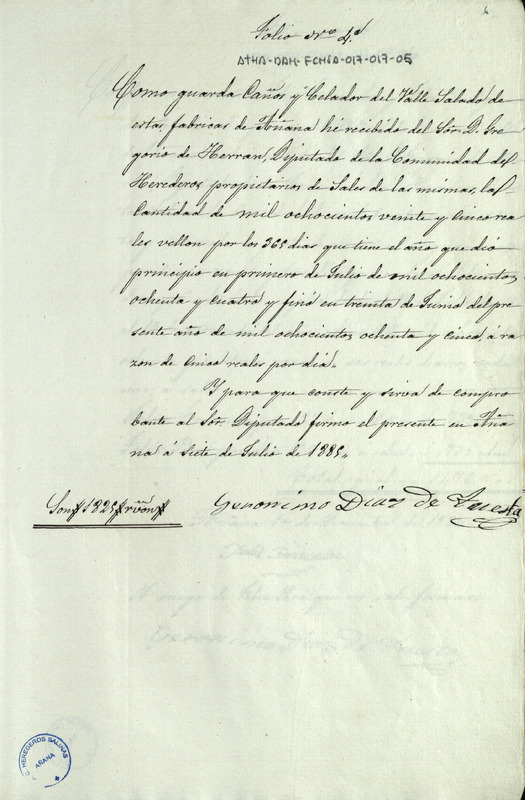 6
Folio nro 4º
ATHA-DAH-FCHSA-017-017-05
Como guarda Caños y Celador del Valle Salado de
estas fabricas de Añana hé recibido del Sor. D. Gre
gorio de Herran, Diputado de la Comunidad de
Herederos propietarios de Sales de las mismas, la
Cantidad de mil ochocientos veinte y cinco rea
les vellon por los 365 dias que tiene el año que dió
principio en primero de Julio de mil ochocientos
ochenta y cuatro y finó en treinta de Junio del pre
sente año de mil ochocientos ochenta y cinco, á ra
zon de cinco reales por dia.
Y para que conste y sirva de compro
bante al Sor. Diputado firmo el presente en Aña
na á siete de Julio de 1885.
Son 1825 rvon
Geronimo Dias de Tuesta
HEREDEROS SALINAS
AÑANA